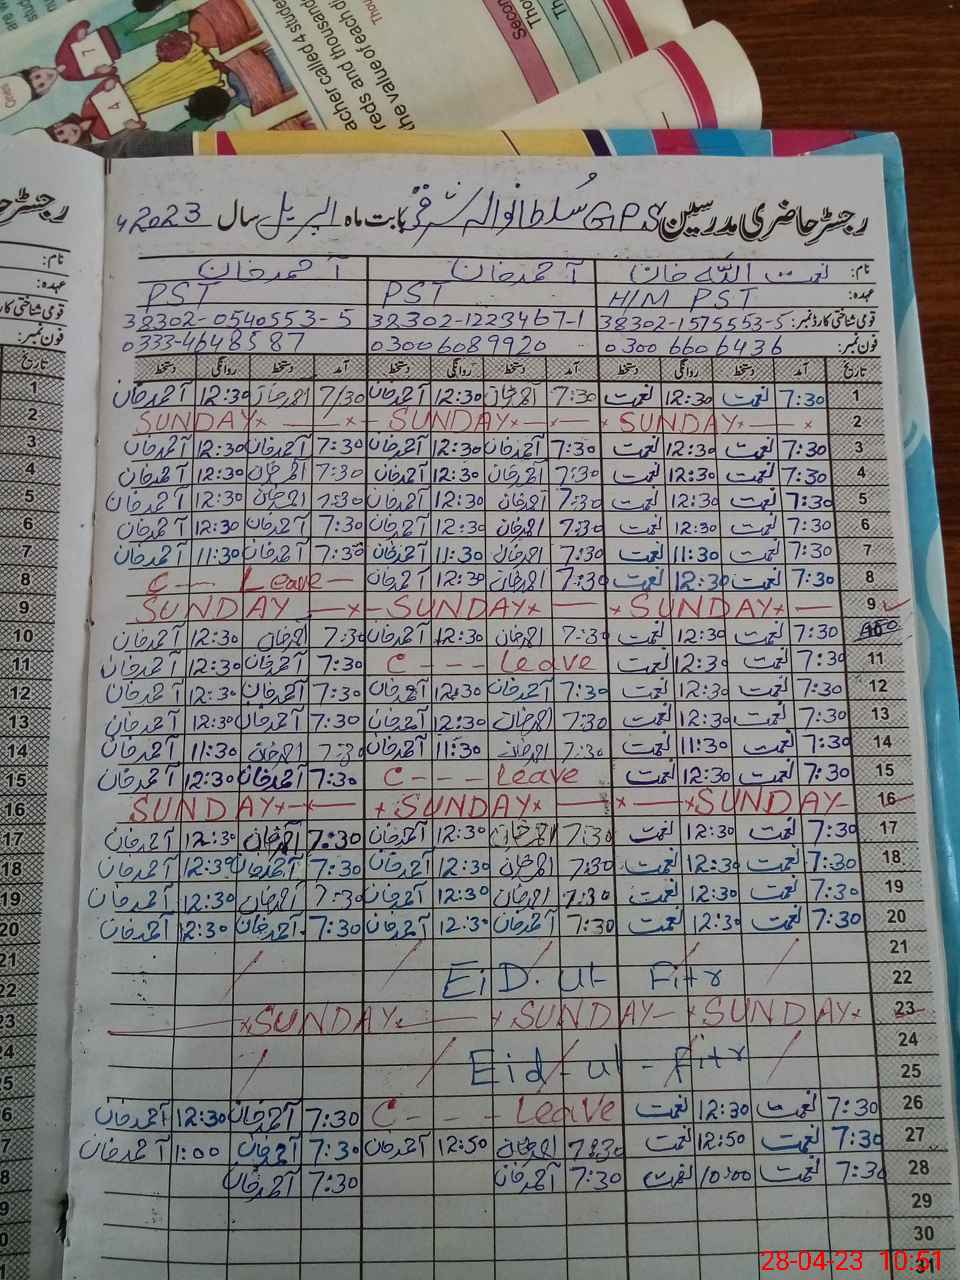 acher called 4 student
reds and thousand
the value of each di
Secon
Tho
Th
رجسٹر حاضری مدرسین G.P.S سُلطانوالہ شرقی بابت ماہ اپریل سال 2023ء
نام: نعمت اللہ خان آحمد خان آحمد خان
عہدہ: H/M PST PST PST
قومی شناختی کارڈ نمبر: 38302-1575553-5 38302-1223467-1 38302-0540553-5
فون نمبر: 0300 660 6436 03006089920 0333-4648587
تاریخ آمد دستخط روانگی دستخط آمد دستخط روانگی دستخط آمد دستخط روانگی دستخط
1 7:30 نعمت 12:30 نعمت 7:30 آحمدخان 12:30 آحمدخان 7/30 آحمدخان 12:30 آحمدخان
2 SUNDAY SUNDAY SUNDAY
3 7:30 نعمت 12:30 نعمت 7:30 آحمدخان 12:30 آحمدخان 7:30 آحمدخان 12:30 آحمدخان
4 7:30 نعمت 12:30 نعمت 7:30 آحمدخان 12:30 آحمدخان 7:30 آحمدخان 12:30 آحمدخان
5 7:30 نعمت 12:30 نعمت 7:30 آحمدخان 12:30 آحمدخان 7:30 آحمدخان 12:30 آحمدخان
6 7:30 نعمت 12:30 نعمت 7:30 آحمدخان 12:30 آحمدخان 7:30 آحمدخان 12:30 آحمدخان
7 7:30 نعمت 11:30 نعمت 7:30 آحمدخان 11:30 آحمدخان 7:30 آحمدخان 11:30 آحمدخان
8 7:30 نعمت 12:30 نعمت 7:30 آحمدخان 12:30 آحمدخان C --- Leave
9 SUNDAY SUNDAY SUNDAY
10 7:30 نعمت 12:30 نعمت 7:30 آحمدخان 12:30 آحمدخان 7:30 آحمدخان 12:30 آحمدخان
11 7:30 نعمت 12:30 نعمت C --- Leave 7:30 آحمدخان 12:30 آحمدخان
12 7:30 نعمت 12:30 نعمت 7:30 آحمدخان 12:30 آحمدخان 7:30 آحمدخان 12:30 آحمدخان
13 7:30 نعمت 12:30 نعمت 7:30 آحمدخان 12:30 آحمدخان 7:30 آحمدخان 12:30 آحمدخان
14 7:30 نعمت 11:30 نعمت 7:30 آحمدخان 11:30 آحمدخان 7:30 آحمدخان 11:30 آحمدخان
15 7:30 نعمت 12:30 نعمت C --- Leave 7:30 آحمدخان 12:30 آحمدخان
16 SUNDAY SUNDAY SUNDAY
17 7:30 نعمت 12:30 نعمت 7:30 آحمدخان 12:30 آحمدخان 7:30 آحمدخان 12:30 آحمدخان
18 7:30 نعمت 12:30 نعمت 7:30 آحمدخان 12:30 آحمدخان 7:30 آحمدخان 12:30 آحمدخان
19 7:30 نعمت 12:30 نعمت 7:30 آحمدخان 12:30 آحمدخان 7:30 آحمدخان 12:30 آحمدخان
20 7:30 نعمت 12:30 نعمت 7:30 آحمدخان 12:30 آحمدخان 7:30 آحمدخان 12:30 آحمدخان
21
22 EiD. Ul- Fitr
23 SUNDAY SUNDAY SUNDAY
24
25 Eid-ul-Fitr
26 7:30 نعمت 12:30 نعمت C --- Leave 7:30 آحمدخان 12:30 آحمدخان
27 7:30 نعمت 12:50 نعمت 7:30 آحمدخان 12:50 آحمدخان 7:30 آحمدخان 1:00 آحمدخان
28 7:30 نعمت 10:00 نعمت 7:30 آحمدخان 7:30 آحمدخان
29
30
31
28-04-23 10:51